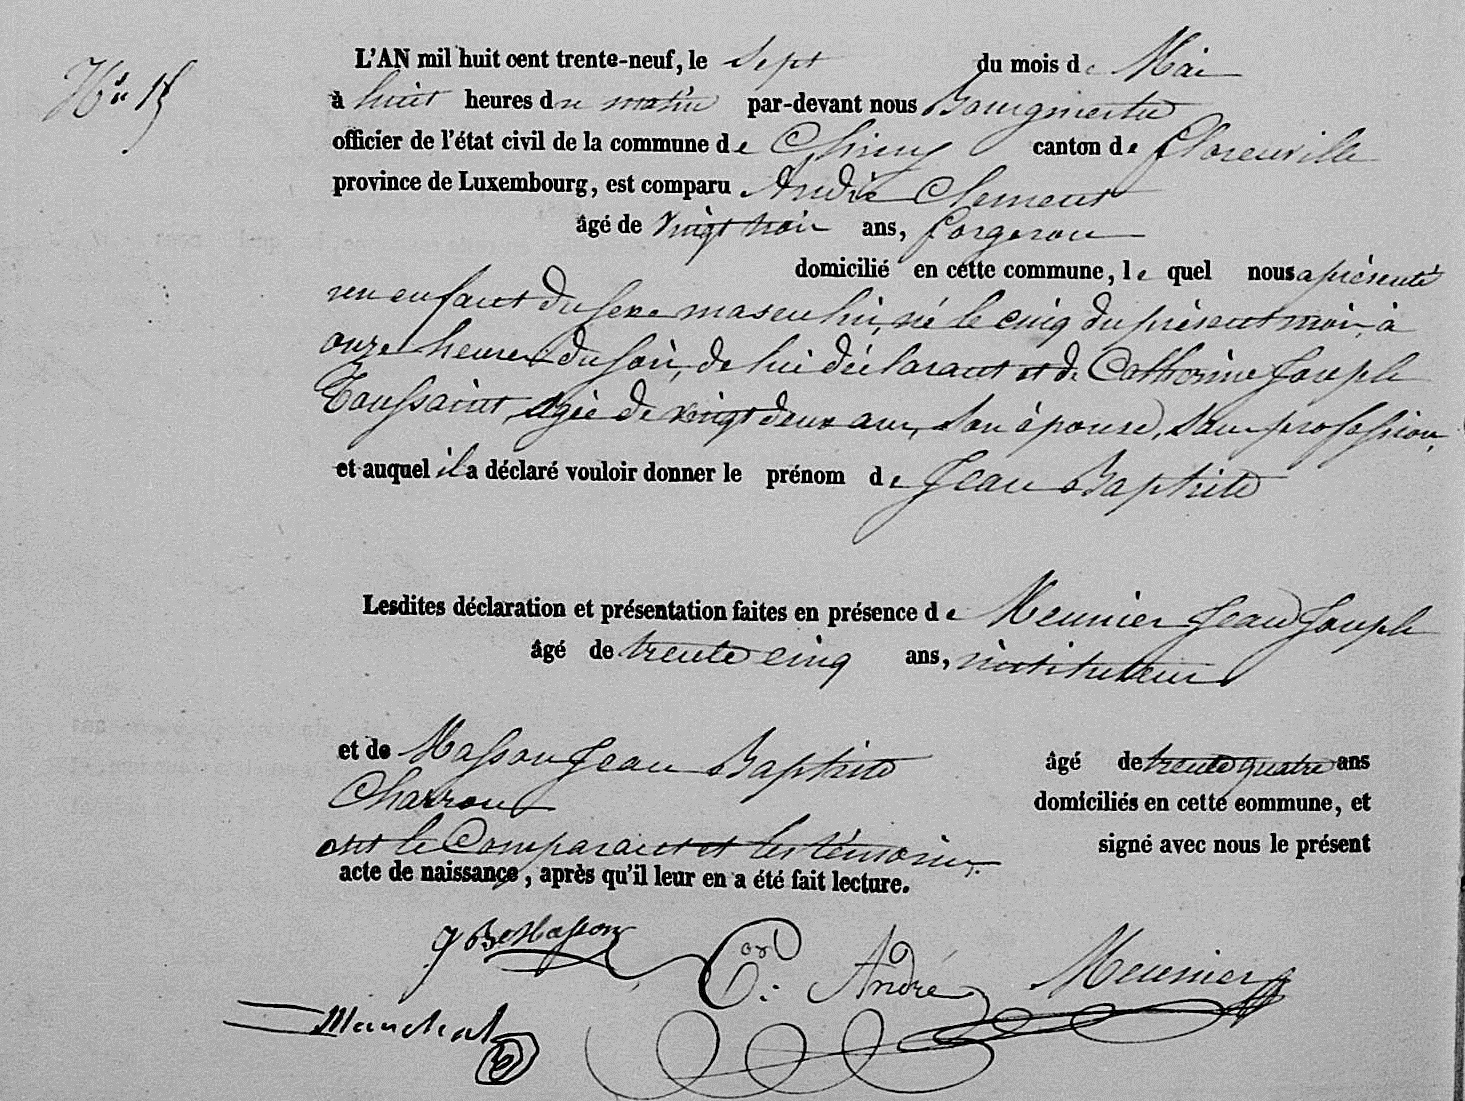 L'AN mil huit cent trente-neuf, le sept du mois de Mai
N° 15
à huit heures du matin par-devant nous Bourgmestre
officier de l'état civil de la commune de Chiny canton de Florenville
province de Luxembourg, est comparu André Clement
âgé de vingt trois ans, forgeron
domicilié en cette commune, le quel nous a présenté
un enfant du sexe masculin, né le cinq du présent mois, à
onze heures du soir, de lui déclarant et de Catherine Joseph
Toussaint, agée de vingt deux ans, son épouse, sans profession,
et auquel il a déclaré vouloir donner le prénom de Jean Baptiste
Lesdites déclaration et présentation faites en présence de Meunier Jean Joseph
âgé de trente cinq ans, instituteur
et de Masson Jean Baptiste âgé de trente quatre ans
Charron domiciliés en cette commune, et
ont le Comparant et les témoins signé avec nous le présent
acte de naissance, après qu'il leur en a été fait lecture.
J Bte Masson C. André Meunier